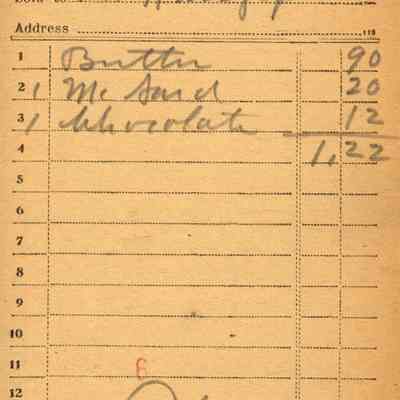 Address 118
1 Butter 90
2 1 Mc Sand 20
3 1 Chocolate 12
4 1,22
5
6
7
8
9
10
11 6
12